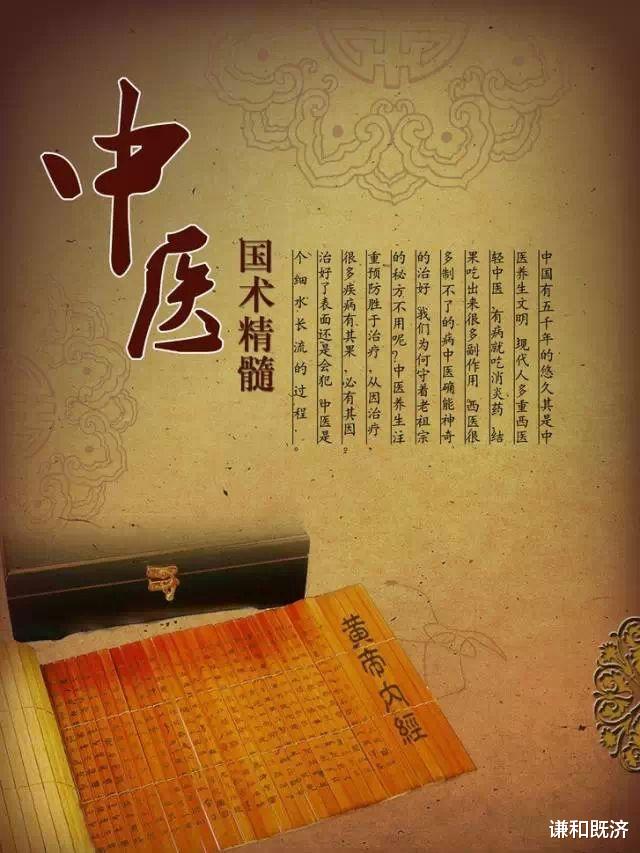 中医
国术精髓
中国有五千年的悠久其是中
医养生文明 现代人多重西医
轻中医 有病就吃消炎药 结
果吃出来很多副作用 西医很
多制不了的病中医确能神奇
的治好 我们为何守着老祖宗
的秘方不用呢?中医养生注
重预防胜于治疗,从因治疗,
很多疾病有其果,必有其因?
治好了表面还是会犯 中医是
个细水长流的过程。
黄帝内經
谦和既济